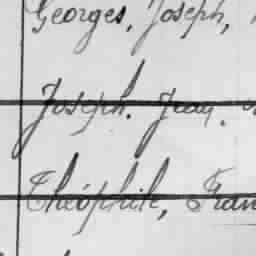 Georges, Joseph,
Joseph. Jean.
Théophile, Fran